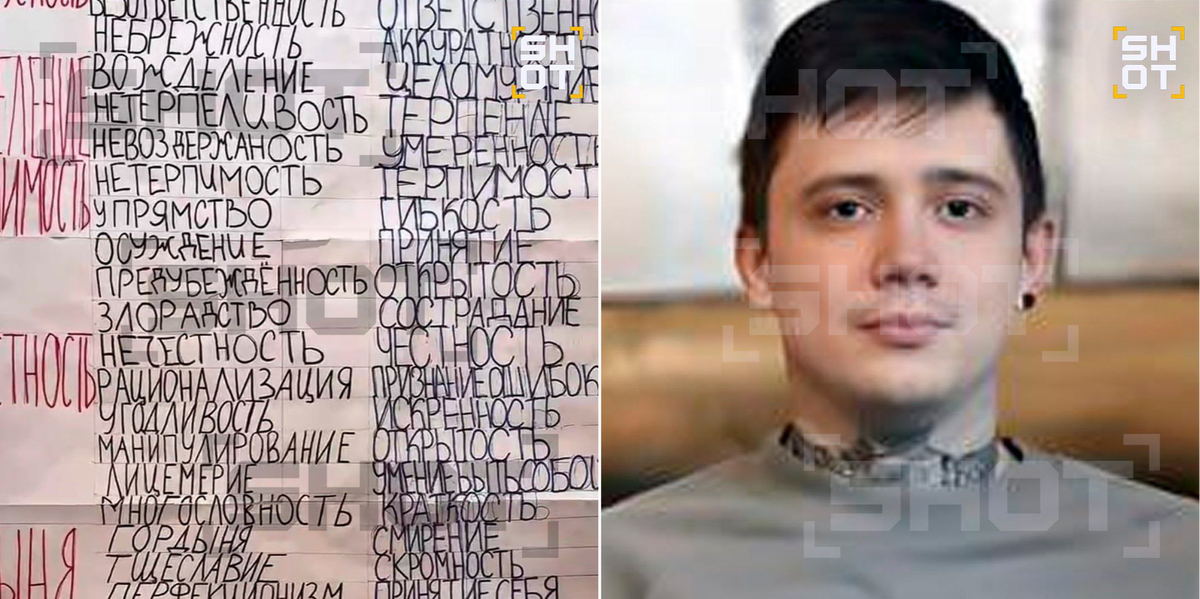 БЕЗОТВЕТСТВЕННОСТЬ ОТВЕТСТВЕННО
НЕБРЕЖНОСТЬ АККУРАТНО
ВОЖДЕЛЕНИЕ ЦЕЛОМУ
НЕТЕРПЕЛИВОСТЬ ТЕРПЕНИЕ
НЕВОЗДЕРЖАНОСТЬ УМЕРЕННОСТЬ
ИМОСТЬ НЕТЕРПИМОСТЬ ТЕРПИМОСТ
УПРЯМСТВО ГИБКОСТЬ
ОСУЖДЕНИЕ ПРИНЯТИЕ
ПРЕДУБЕЖДЁННОСТЬ ОТКРЫТОСТЬ
ЗЛОРАДСТВО СОСТРАДАНИЕ
НЕЧЕСТНОСТЬ ЧЕСТНОСТЬ
ТНОСТЬ РАЦИОНАЛИЗАЦИЯ ПРИЗНАНИЕ ОШИБОК
УГОДЛИВОСТЬ ИСКРЕННОСТЬ
МАНИПУЛИРОВАНИЕ ОТКРЫТОСТЬ
ЛИЦЕМЕРИЕ УМЕНИЕ БЫТЬ СОБОЙ
МНОГОСЛОВНОСТЬ КРАТКОСТЬ
ГОРДЫНЯ СМИРЕНИЕ
ЫНЯ ТЩЕСЛАВИЕ СКРОМНОСТЬ
ПЕРФЕКЦИОНИЗМ ПРИНЯТИЕ СЕБЯ
SHOT
SHOT
SHOT
SHOT
SHOT